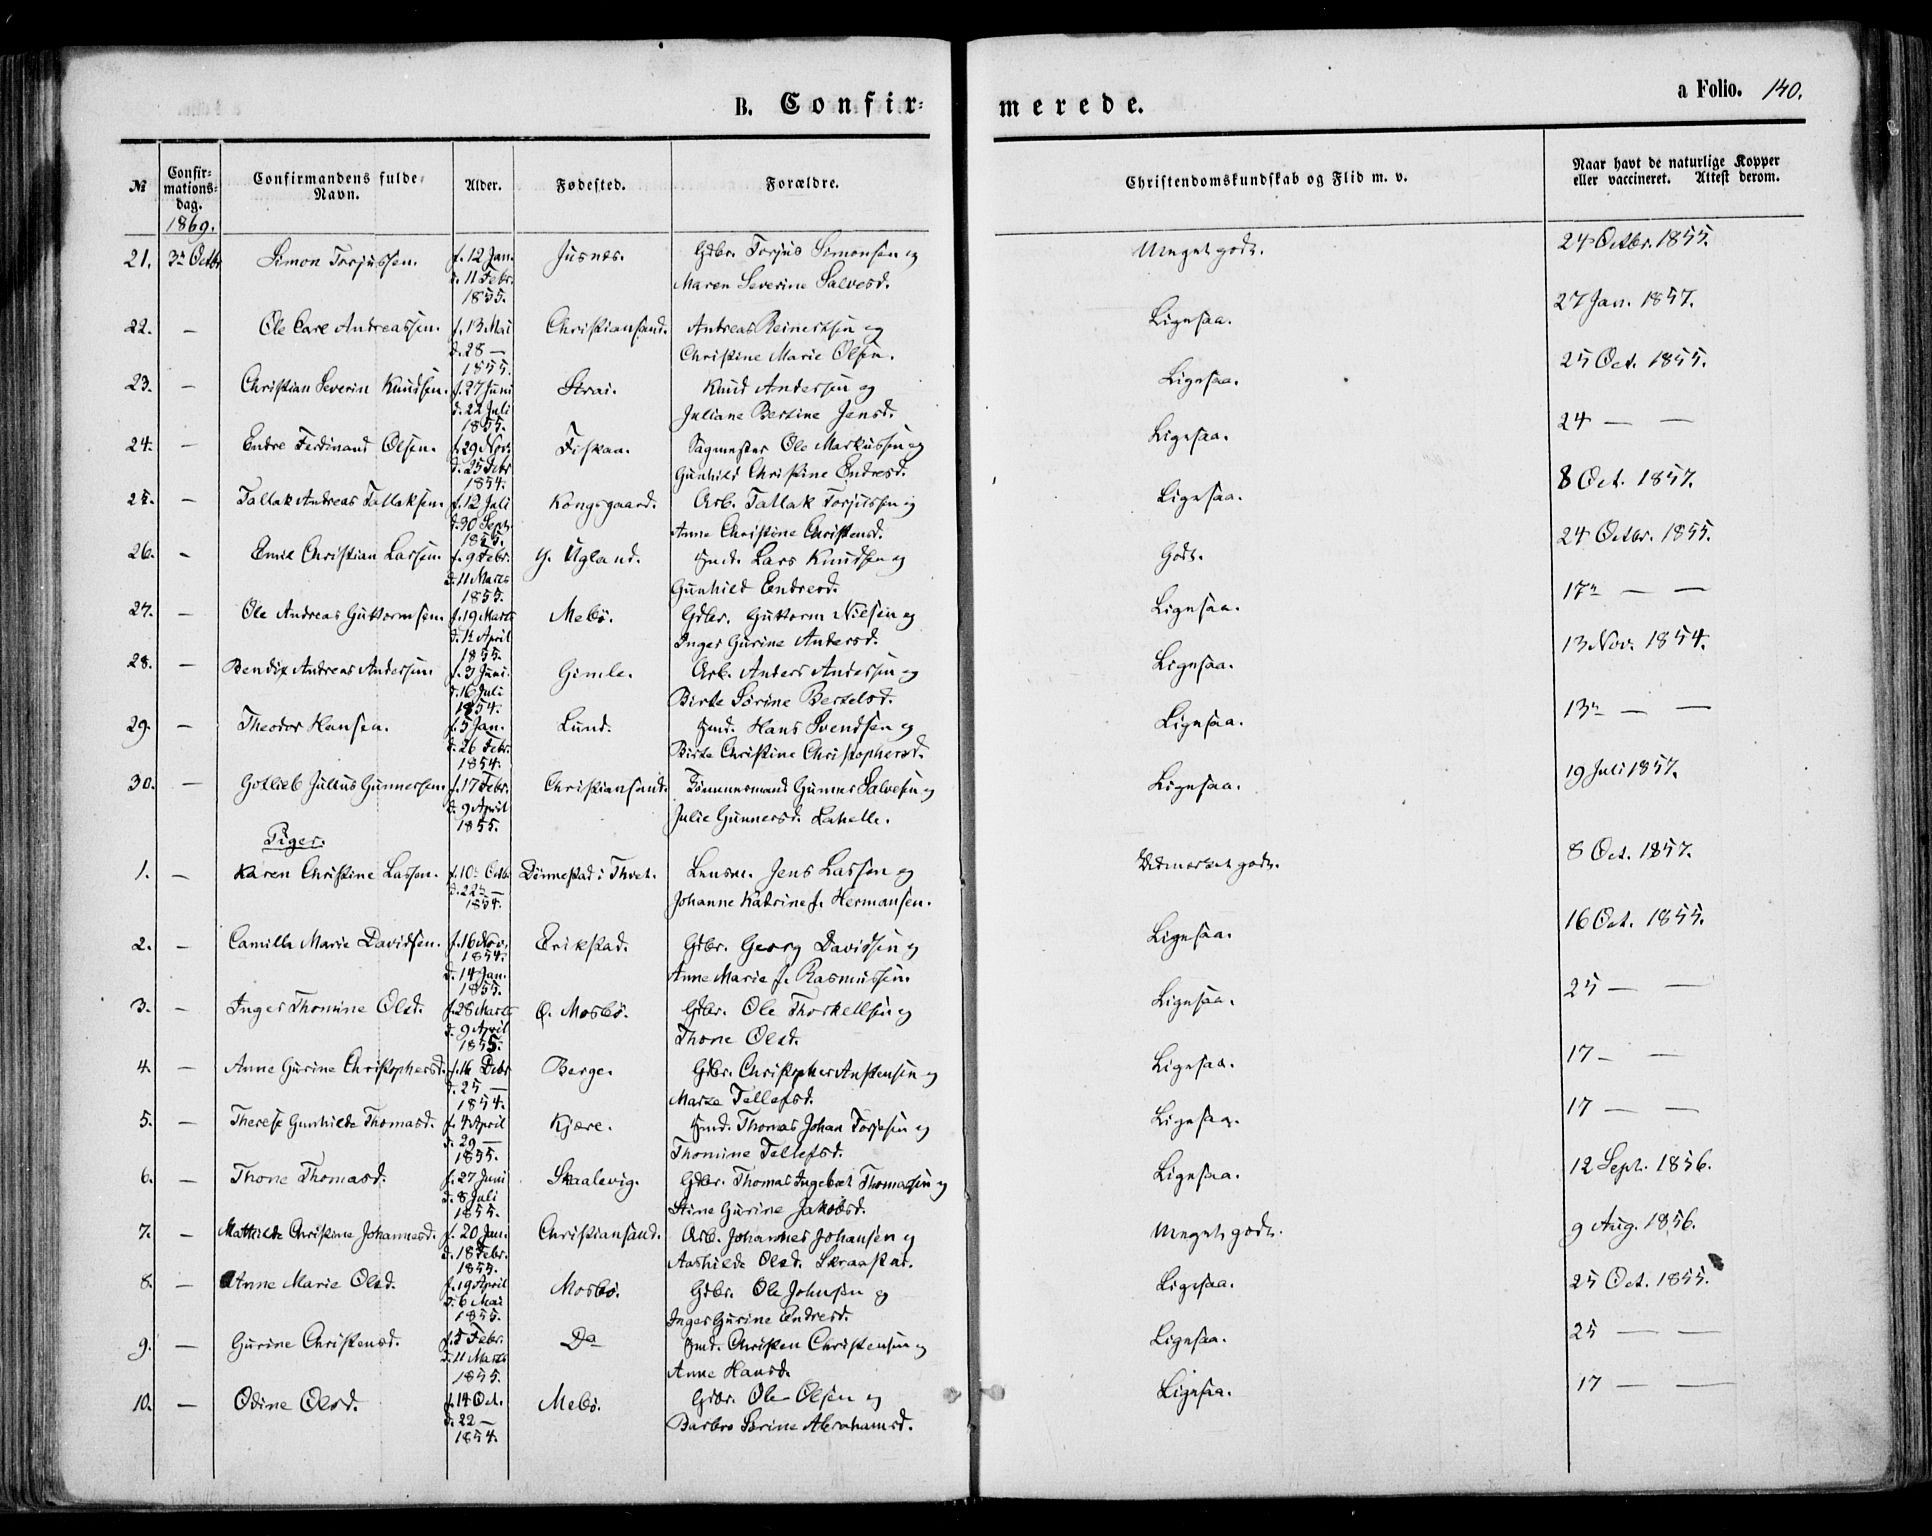 B. Confir-
merede.
a Folio. 140.
№ Confir-mations-dag. Confirmandens fulde Navn. Alder. Fødested. Forældre. Christendomskundskab og Flid m. v. Naar havt de naturlige Kopper eller vaccineret. Attest derom.
1869.
21. 3n Octbr Simon Torjussen. f. 12 Jan. Jusnes. Gdbr. Torjus Simonsen og Meget godt. 24 Octbr. 1855.
d. 11 Febr. Maren Severine Salvesd.
1855.
22. — Ole Carl Andreassen. f. 13 Mai Christiansand. Andreas Reinertsen og Ligesaa. 27 Jan. 1857.
d. 28 — Christine Marie Olsen.
1855.
23. — Christian Severin Knudsen. f. 27 Juni Strai. Knud Andersen og Ligesaa. 25 Oct. 1855.
d. 22 Juli Juliane Bertine Jensd.
1855.
24. — Endre Ferdinand Olsen. f. 29 Nov. Fiskaa. Sagmester Ole Markussen og Ligesaa. 24 — —
d. 25 Febr Gunhild Christine Endresd.
1854.
25. — Tallak Andreas Tallaksen. f. 12 Juli Kongsgaard. Arb. Tallak Torjussen og Ligesaa. 8 Oct. 1857.
d. 30 Sept. Anne Christine Christensd.
1855.
26. - Emil Christian Larsen. f. 9 Febr. Y. Ugland. Hmd. Lars Knudsen og Godt. 24 Octbr. 1855.
d. 11 Marts Gunhild Endresd.
1855.
27. — Ole Andreas Guttormsen. f. 19 Marts Mebø. Gdbr. Guttorm Nielsen og Ligesaa. 17n — —
d. 12 April Inger Gurine Andersd.
1855.
28. — Bendix Andreas Andersen. f. 3 Juni. Gimle. Arb. Anders Andersen og Ligesaa. 13 Nov. 1854.
d. 16 Juli Birte Sørine Bertelsd.
1854.
29. — Theodor Hansen. f. 5 Jan. Lund. Hmd. Hans Svendsen og Ligesaa. 13n — —
d. 26 Febr. Birte Christine Christophersd.
1854.
30. — Gotlieb Julius Gunnersen f. 17 Febr. Christiansand. Tømmermand Gunner Salvesen og Ligesaa. 19 Juli 1857.
d. 9 April Julie Gunnersd. Lahelle.
1855.
Piger.
1. — Karen Christine Larsen. f. 10n Octbr Dønnestad i Thvet. Lensm. Jens Larsen og Udmærket godt. 8 Oct. 1857.
d. 22n — Johanne Katrine f. Hermansen.
1854.
2. — Camilla Marie Davidsen. f. 16 Nov. Erikstad. Gdbr. Georg Davidsen og Ligesaa. 16 Oct. 1855.
1854.
d. 14 Jan. Anne Marie f. Rasmussen.
1855.
3. — Inger Thomine Olsd. f. 28 Marts Ø. Mosbø. Gdbr. Ole Thorkellsen og Ligesaa. 25 — —
d. 9 April Thone Olsd.
1855.
4. — Anne Gurine Christophersd. f. 16 Debr Berge. Gdbr. Christopher Anstensen og Ligesaa. 17 — —
d. 25 — Marte Tellefsd.
1854.
5. — Therese Gunhilde Thomasd. f. 4 April Kjære. Hmd. Thomas Johan Torjesen og Ligesaa. 17 — —
d. 29 — Thomine Tellefsd.
1855.
6. — Thone Thomasd. f. 27 Juni Skaalevig. Gdbr. Thomas Ingebret Thomassen og Ligesaa. 12 Sept. 1856.
d. 8 Juli Stine Gurine Jakobsd.
1855.
7. — Mathilde Christine Johannesd. f. 20 Jan. Christiansand. Arb. Johannes Johansen og Meget godt. 9 Aug. 1856.
d. 18 Febr. Aashilde Olsd. Skraastad.
1855.
8. — Anne Marie Olsd. f. 19 April Mosbø. Gdbr. Ole Johnsen og Ligesaa. 25 Oct. 1855.
d. 6 Mai Inger Gurine Endresd.
1855.
9. — Gurine Christensd. f. 5 Febr. Do Hmd. Christen Christensen og Ligesaa. 25 — —
d. 11 Marts Anne Hansd.
1855.
10. — Odine Olsd. f. 14 Oct. Mebø. Gdbr. Ole Olsen og Ligesaa. 17 — —
d. 22 — Barbro Serine Abrahamsd.
1854.